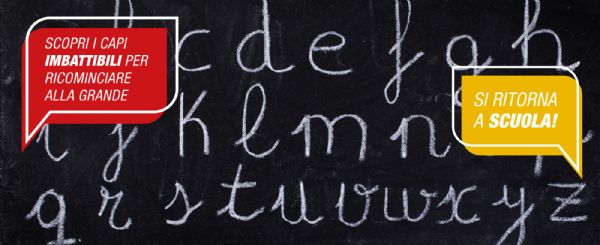 SCOPRI I CAPI
IMBATTIBILI PER
RICOMINCIARE
ALLA GRANDE
SI RITORNA
A SCUOLA!
c d e f g h
i j k l m n
q r s t u v w x y z